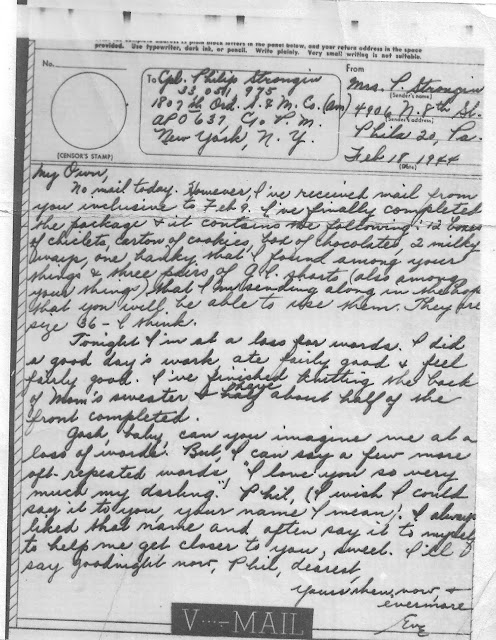 provided. Use typewriter, dark ink, or pencil. Write plainly. Very small writing is not suitable.
No.
(CENSOR'S STAMP)
To Cpl. Philip Strongin
33,051,975
1807th Ord. S. & M. Co. (Am)
APO 637, C/o P.M.
New York, N.Y.
From
Mrs. P. Strongin
(Sender's name)
4906 N. 8th St.
(Sender's address)
Phila 20, Pa.
Feb 18, 1944
(Date)
My Own,
No mail today. However, I've received mail from
you inclusive to Feb 9. I've finally completed
the package & it contains the following: 12 boxes
of chiclets, carton of cookies, box of chocolates, 2 milky
ways, one hanky that I found among your
things & three pairs of G.I. shorts (also among
your things) that I'm sending along in the hope
that you will be able to use them. They are
size 36 - I think.
Tonight I'm at a loss for words. I did
a good day's work, ate fairly good & feel
fairly good. I've finished knitting the back
of Mom's sweater & have about half of the
front completed.
Gosh, baby, can you imagine me at a
loss of words? But, I can say a few more
oft-repeated words, "I love you so very
much my darling"! Phil, (I wish I could
say it to you, your name I mean). I always
liked that name and often say it to myself
to help me get closer to you, sweet. I'll
say goodnight now, Phil, dearest,
Yours then, now, &
evermore
Eve
V···—MAIL